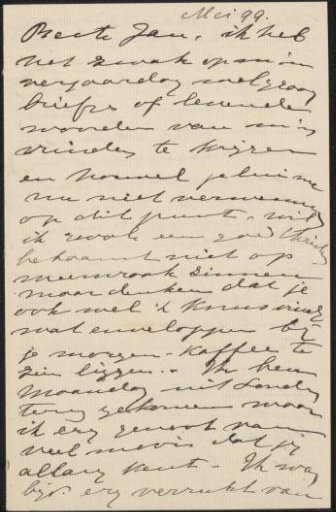 Mei 99.
Beste Jan, ik heb
het zwak op mijn
verjaardag veel graag
briefjes of levende
woorden van mijn
vrinden te krijgen
en hoewel je me
nu niet verwend
op dit punt, wil
ik zoo als een goed Christen
betaamt niet op
meenwraak zinnen
maar denken dat je
ook wel 'n knus vindt
wat enveloppen bij
je morgen-koffie te
zien liggen. - Ik ben
Maandag uit Londen
terug gekomen waar
ik erg genoot van
veel moois dat jij
allang kent. - Ik was
bijv. erg verrukt van